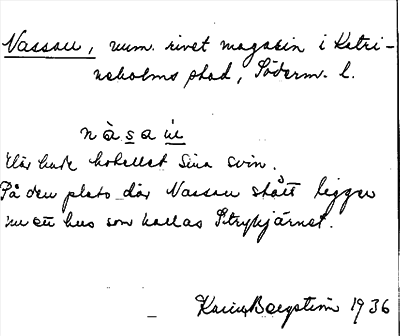 Nassau, num. rivet magasin i Katri-
neholms stad, Söderm. l.
nàsaù
Där hade hotellet sina svin.
På den plats där Nassau stått ligger
nu ett hus som kallas Strykjärnet.
Karin Bergström 1936